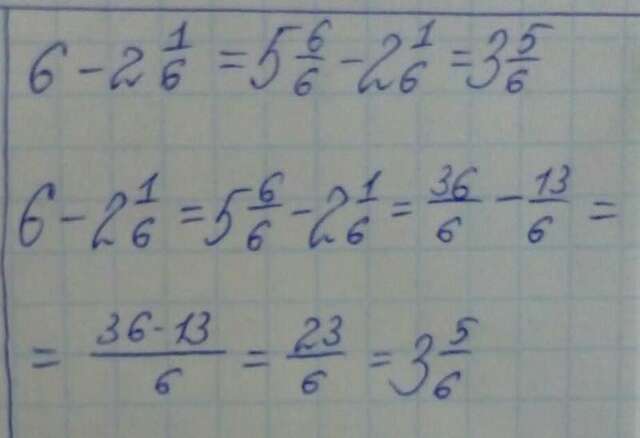 6 - 2 1/6 = 5 6/6 - 2 1/6 = 3 5/6
6 - 2 1/6 = 5 6/6 - 2 1/6 = 36/6 - 13/6 =
= 36-13/6 = 23/6 = 3 5/6